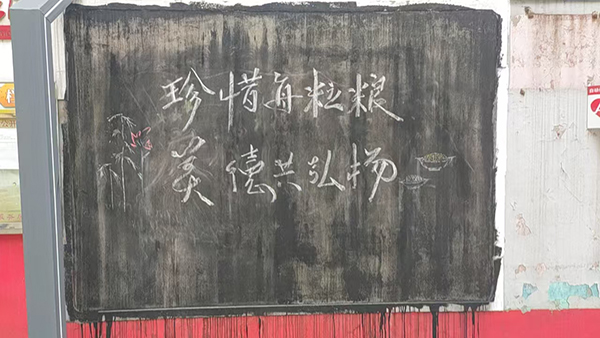 珍惜每粒粮
美德共弘扬